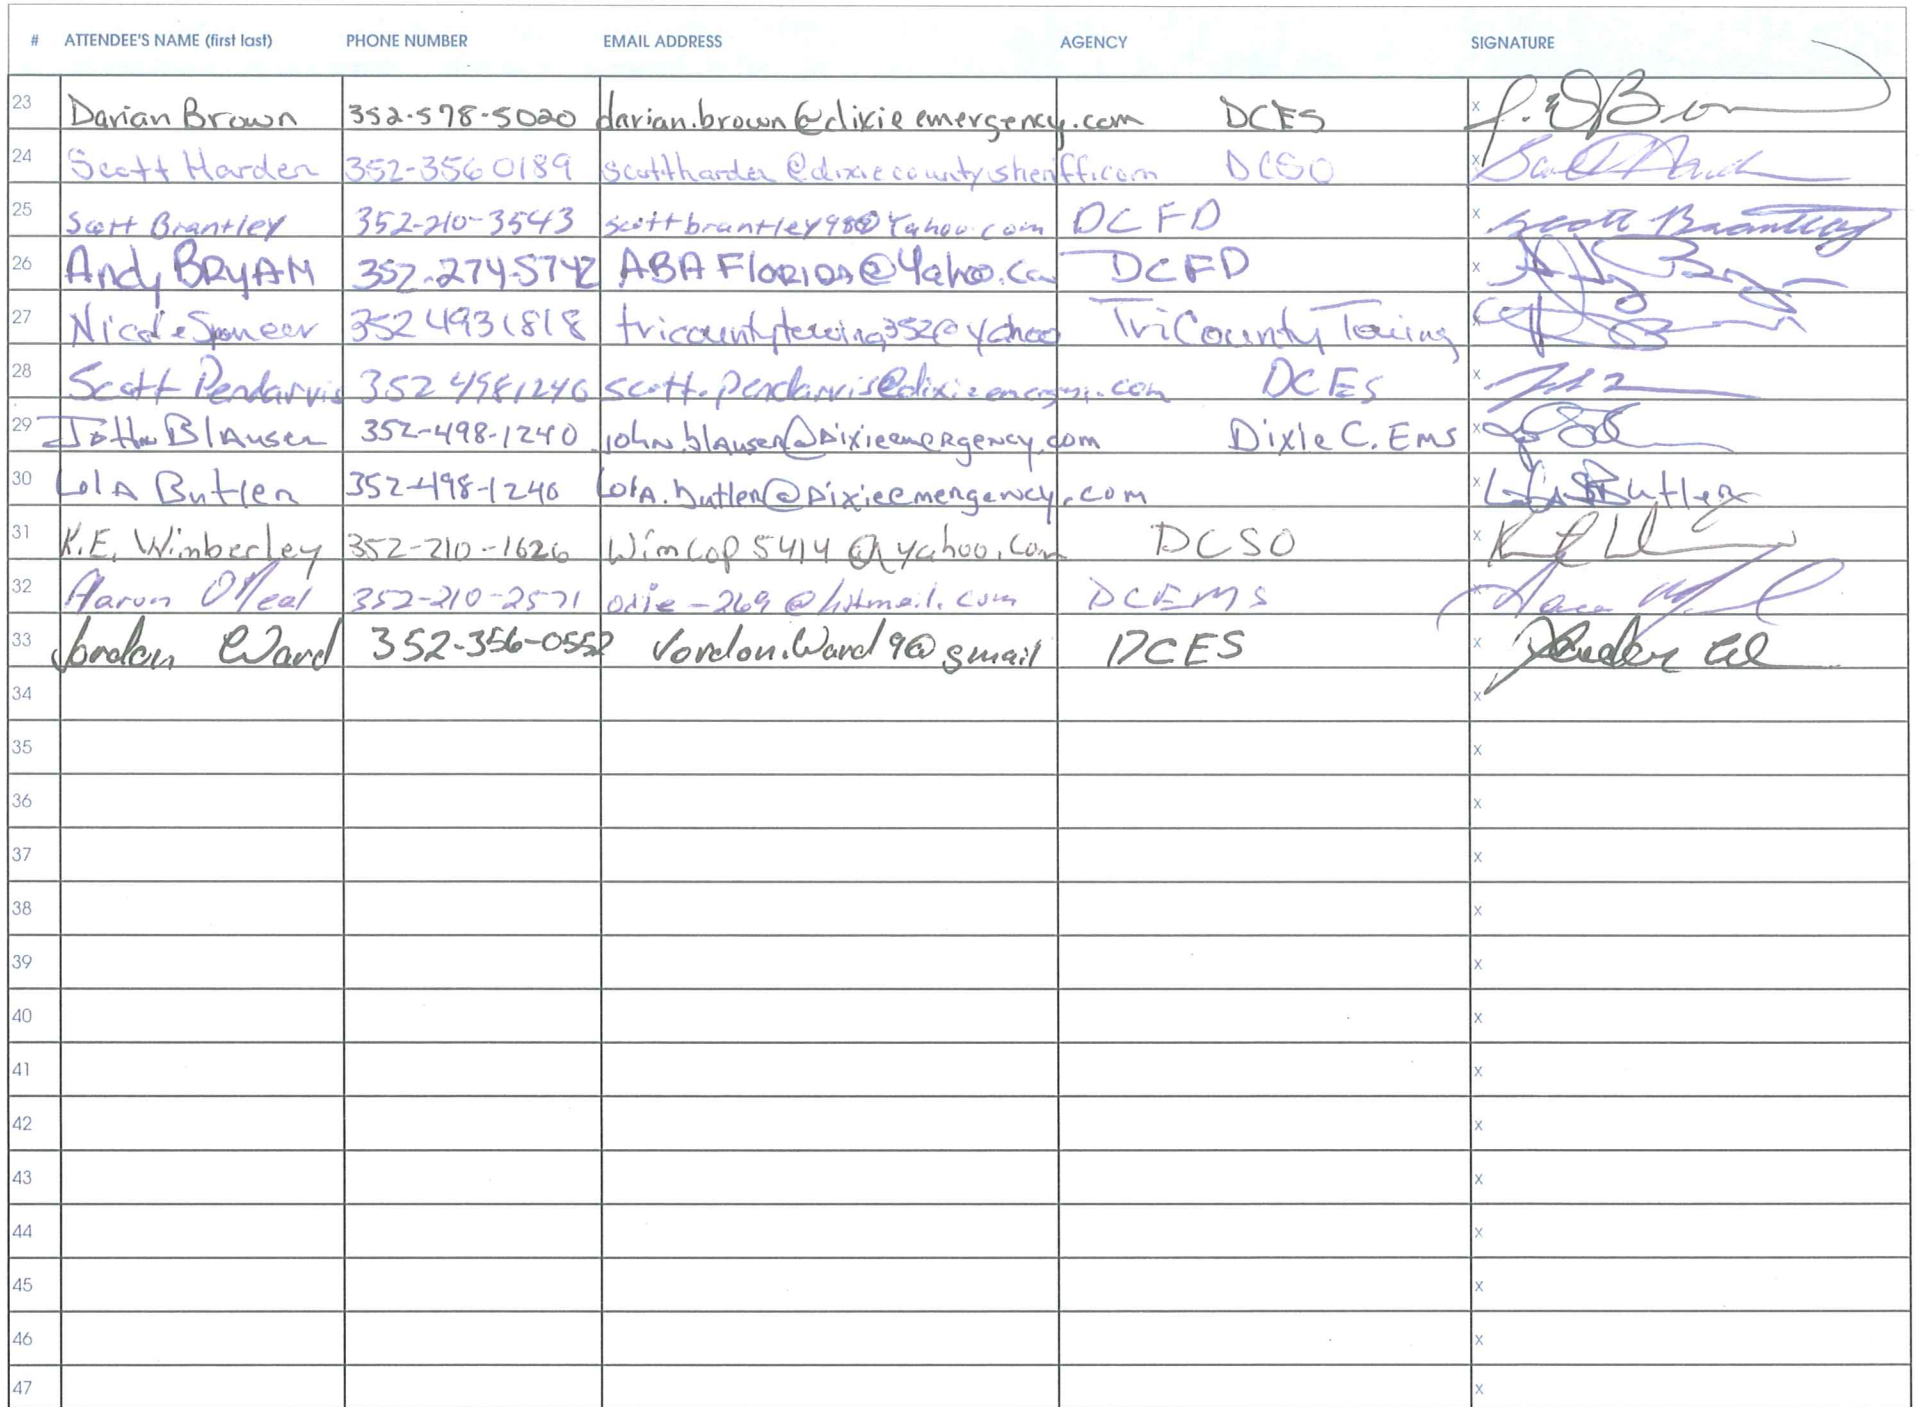 # ATTENDEE'S NAME (first last) PHONE NUMBER EMAIL ADDRESS AGENCY SIGNATURE
23 Darian Brown 352-578-5020 darian.brown@dixieemergency.com DCES x
24 Scott Harden 352-356 0189 scottharden@dixiecountysheriff.com DCSO x
25 Scott Brantley 352-210-3543 scottbrantley98@Yahoo.com DCFD x Scott Brantley
26 Andy BRYAM 352-274-5742 ABAFlORIDA@Yahoo.Co DCFD x
27 Nicole Spencer 352 493 1818 tricountytowing352@yahoo TriCounty Towing x
28 Scott Pendarvis 352 498 1240 scott.pendarvis@dixieemergency.com DCES x
29 John BlAuser 352-498-1240 john.blauser@Dixieemergency.com Dixie C. Ems x
30 LolA Butler 352-498-1240 lolA.butler@Dixieemergency.com x Lola Butler
31 K.E. Wimberley 352-210-1626 Wimcop5414@yahoo.com DCSO x
32 Aaron ONeal 352-210-2571 odie-269@hotmail.com DCEMS x
33 Jordan Ward 352-356-0552 Jordon.Ward9@gmail DCES x
34 x
35 x
36 x
37 x
38 x
39 x
40 x
41 x
42 x
43 x
44 x
45 x
46 x
47 x